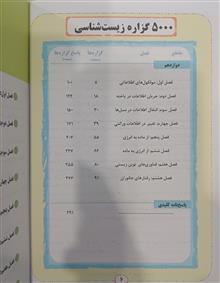 ۵۰۰۰ گزاره زیست‌شناسی
پایه فصل گزاره‌ها پاسخ گزاره‌ها
دوازدهم
فصل اول: مولکول‌های اطلاعاتی ۸ ۱۰۰
فصل دوم: جریان اطلاعات در یاخته ۱۸ ۱۲۴
فصل سوم: انتقال اطلاعات در نسل‌ها ۳۰ ۱۵۰
فصل چهارم: تغییر در اطلاعات وراثتی ۳۹ ۱۷۱
فصل پنجم: از ماده به انرژی ۵۵ ۲۰۷
فصل ششم: از انرژی به ماده ۶۷
فصل هفتم: فناوری‌های نوین زیستی ۸۰ ۲۵۵
فصل هشتم: رفتارهای جانوران ۹۱ ۲۷۷
پاسخ‌نامه کلیدی ۲۹۱
۶